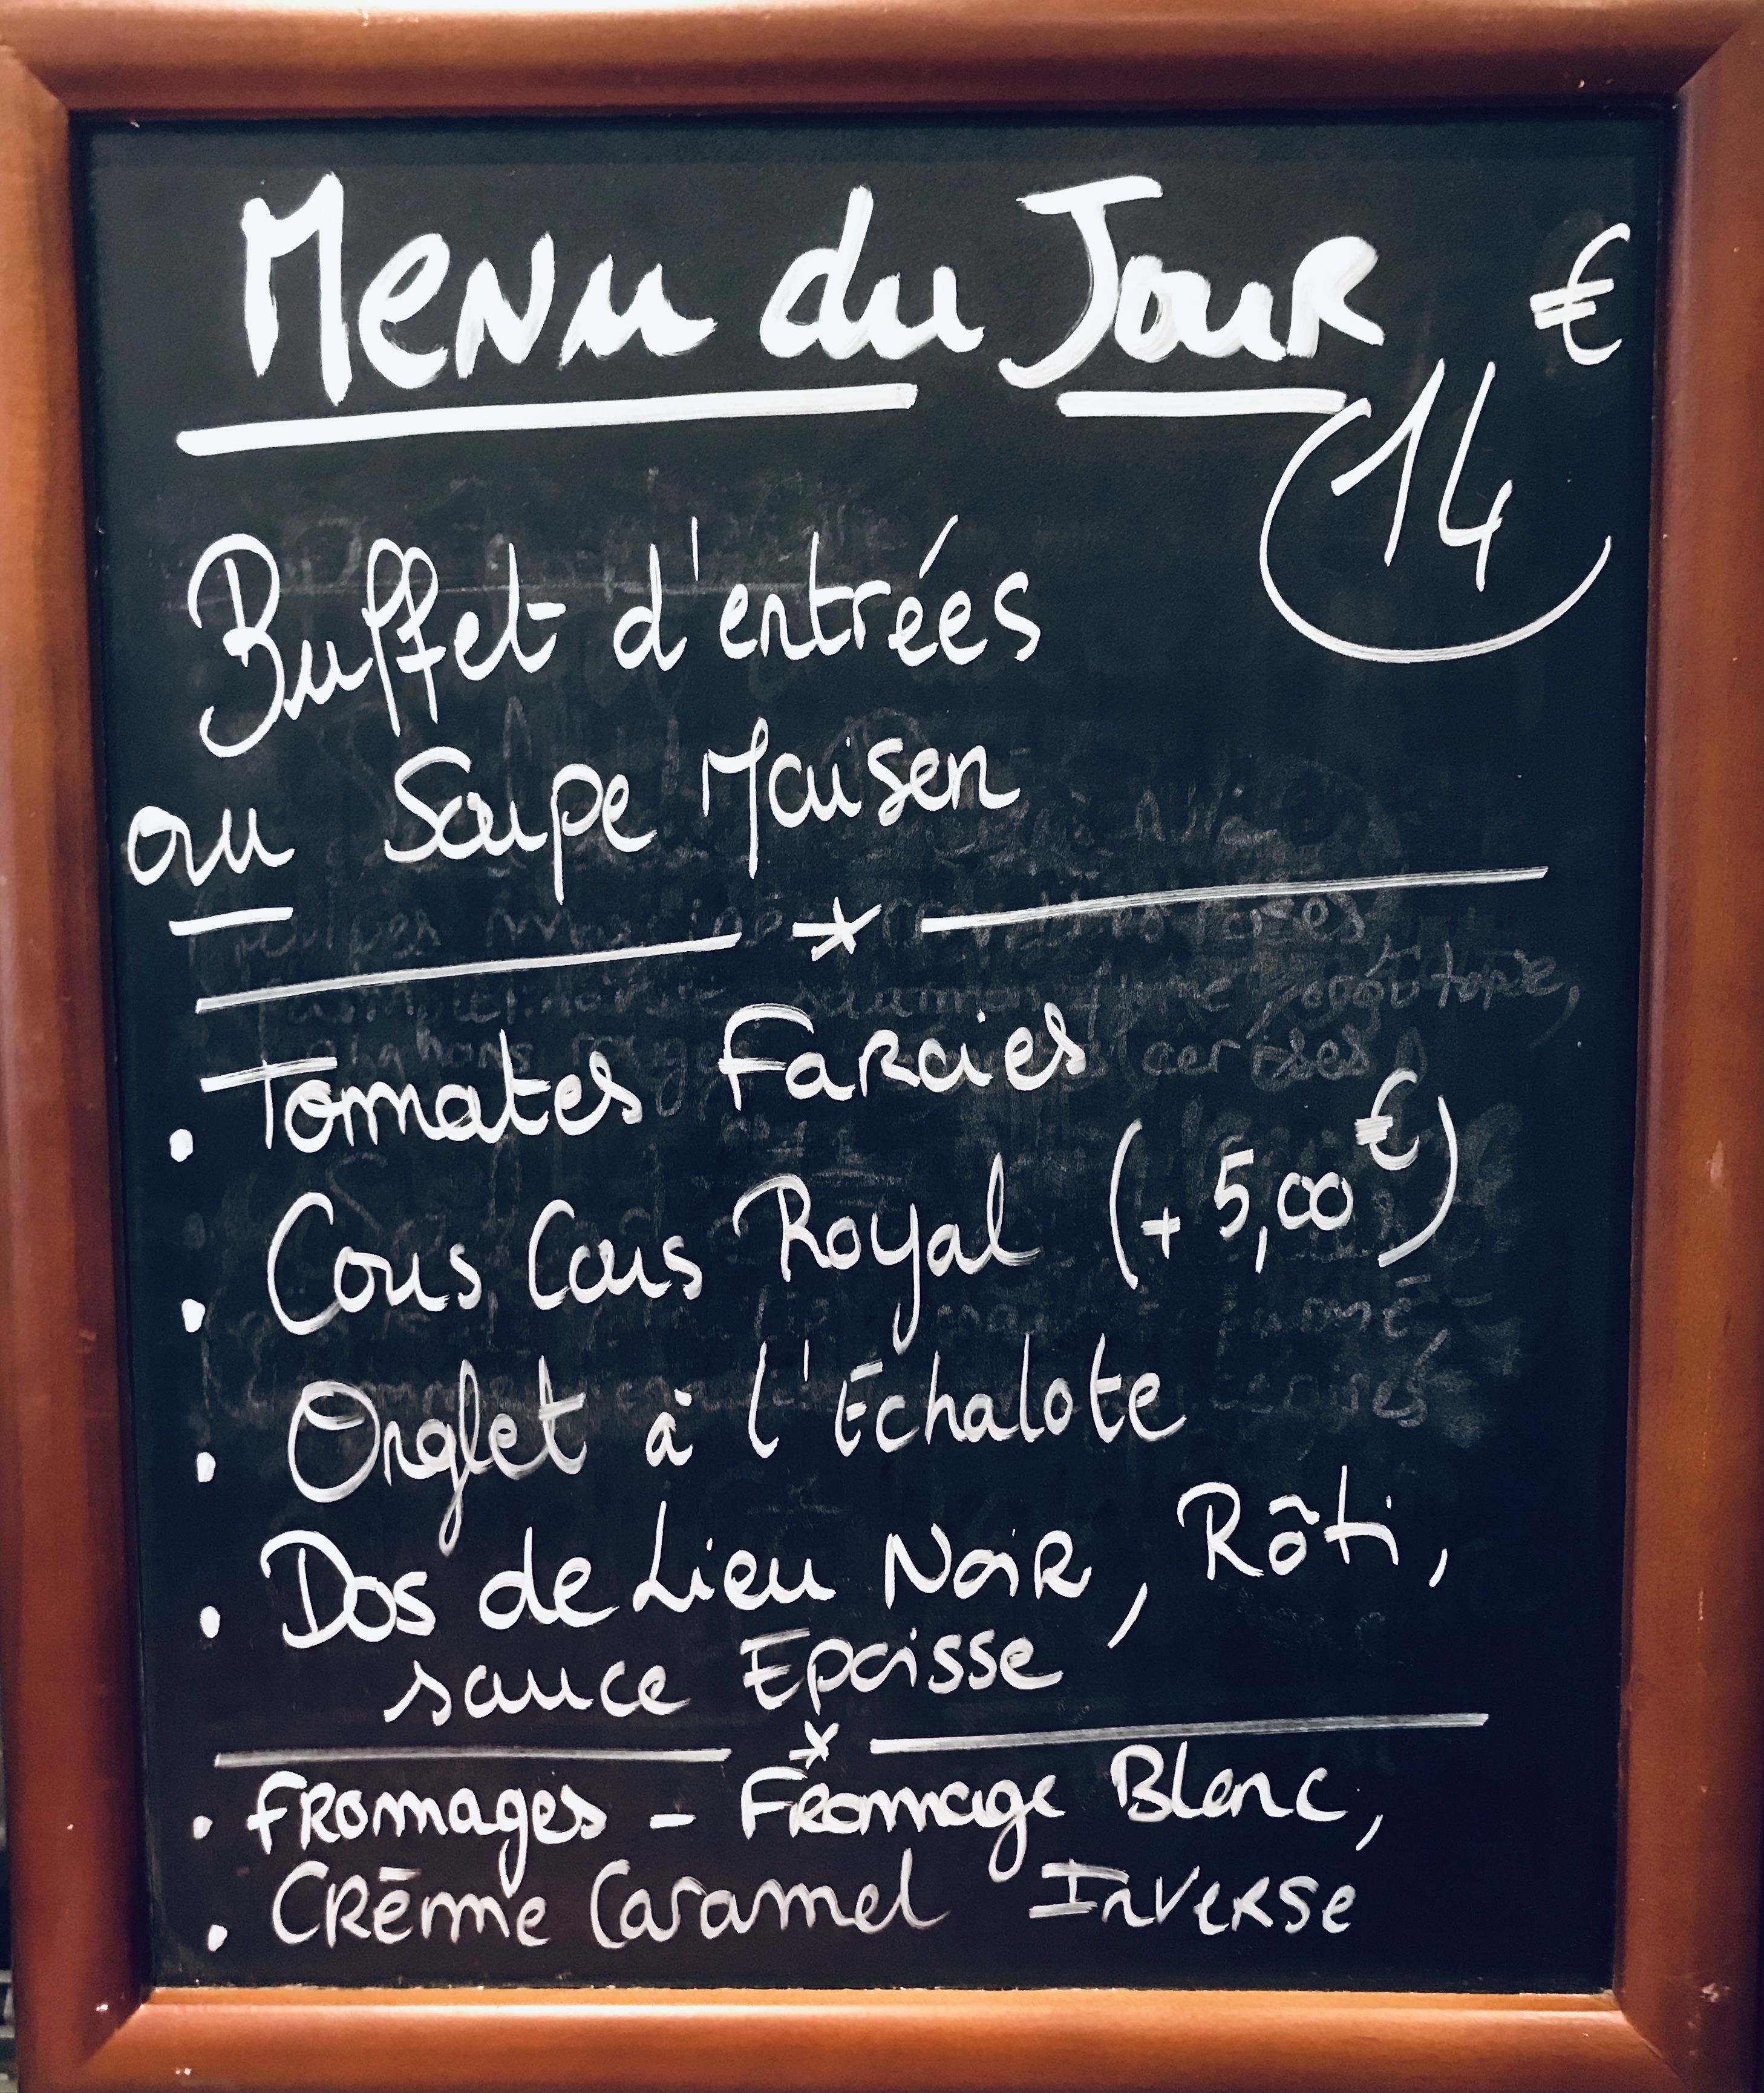 Menu du Jour €
14
Buffet d'entrées
ou Soupe Maison
Tomates Farcies
Cous Cous Royal (+ 5,00€)
Onglet à l'Echalote
Dos de Lieu Noir, Rôti,
sauce Epoisse
Fromages - Fromage Blanc,
Crême Caramel Inverse